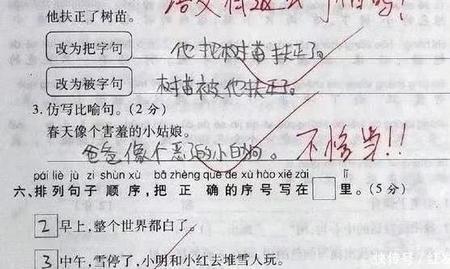 他扶正了树苗。
改为把字句 他把树苗扶正了。
改为被字句 树苗被他扶正了。
3. 仿写比喻句。(2 分)
春天像个害羞的小姑娘。
爸爸像个恶的小白狗。 不恰当!!
pái liè jù zi shùn xù bǎ zhèng què de xù hào xiě zài lǐ
六、排列句子 顺序,把 正 确 的 序 号 写 在 里。(5 分)
2 早上,整个世界都白了。
3 中午,雪停了,小明和小红去堆雪人玩。